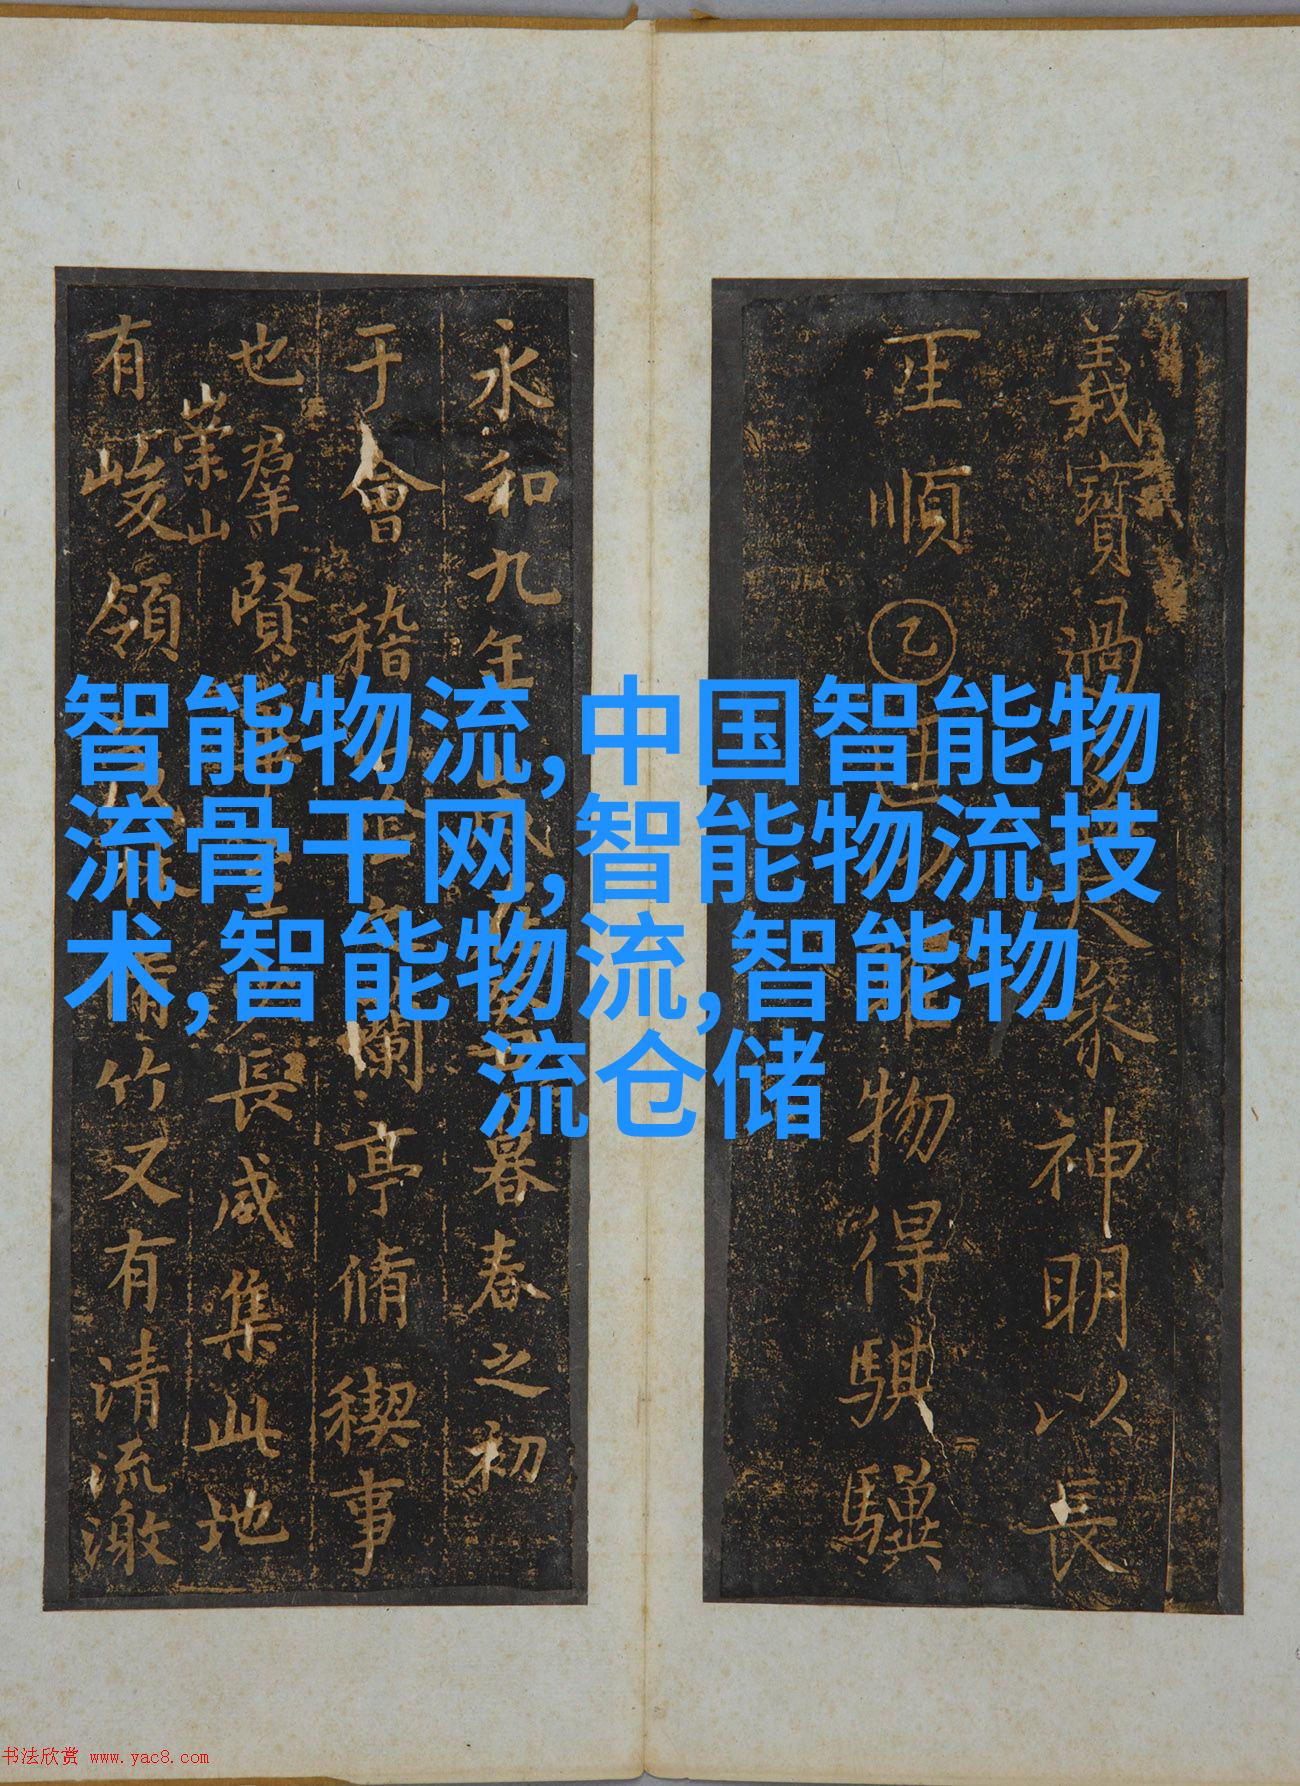 智能物流,中国智能物
流骨干网,智能物流技
术,智能物流,智能物
流仓储
義寶過 神明以長
順乙 物得騏驥
永和九年 暮春之初
于會稽 蘭亭脩禊事
也羣賢 長咸集此地
崇山
有峻領 竹又有清流激
书法欣赏 www.yac8.com